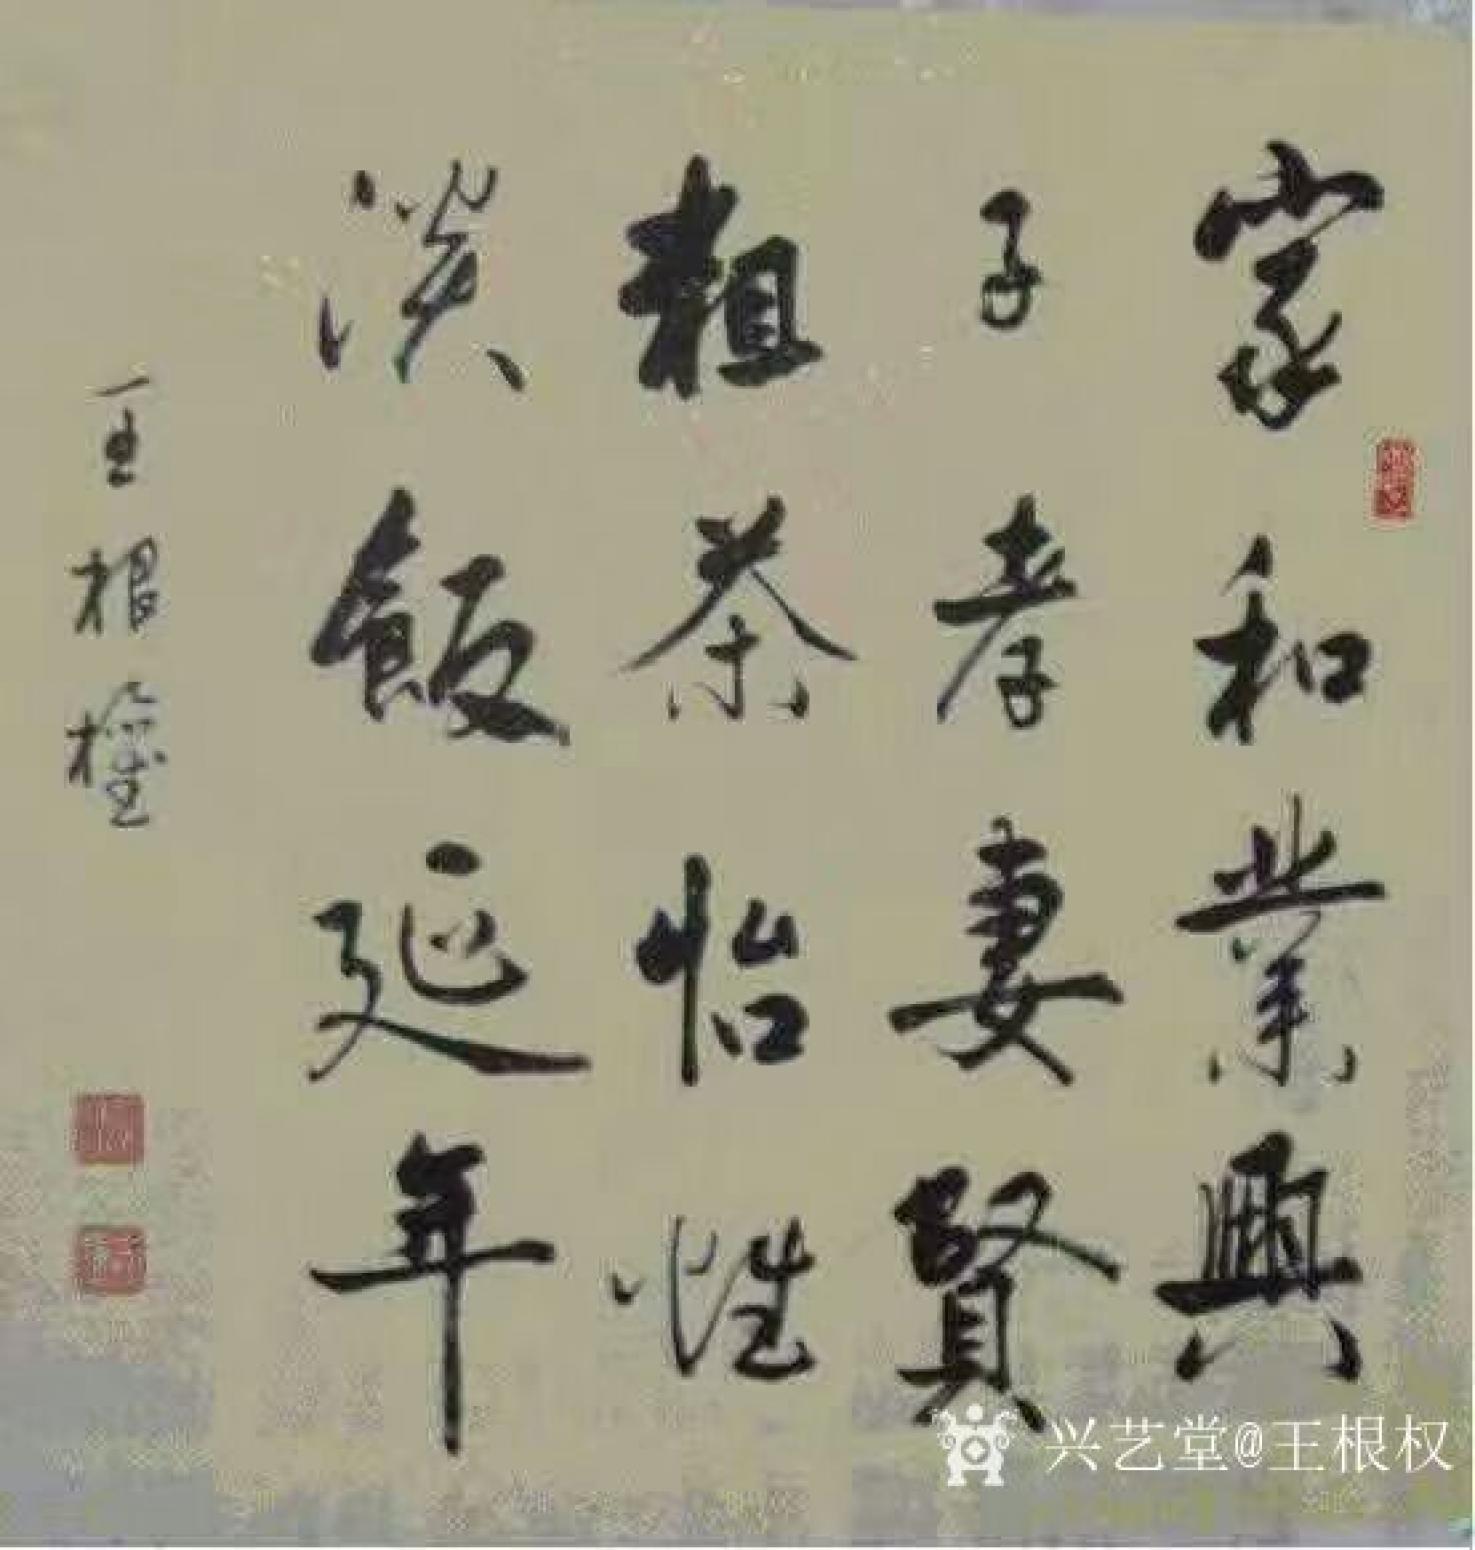 家和業興
子孝妻賢
粗茶怡性
淡飯延年
王根權
兴艺堂@王根权